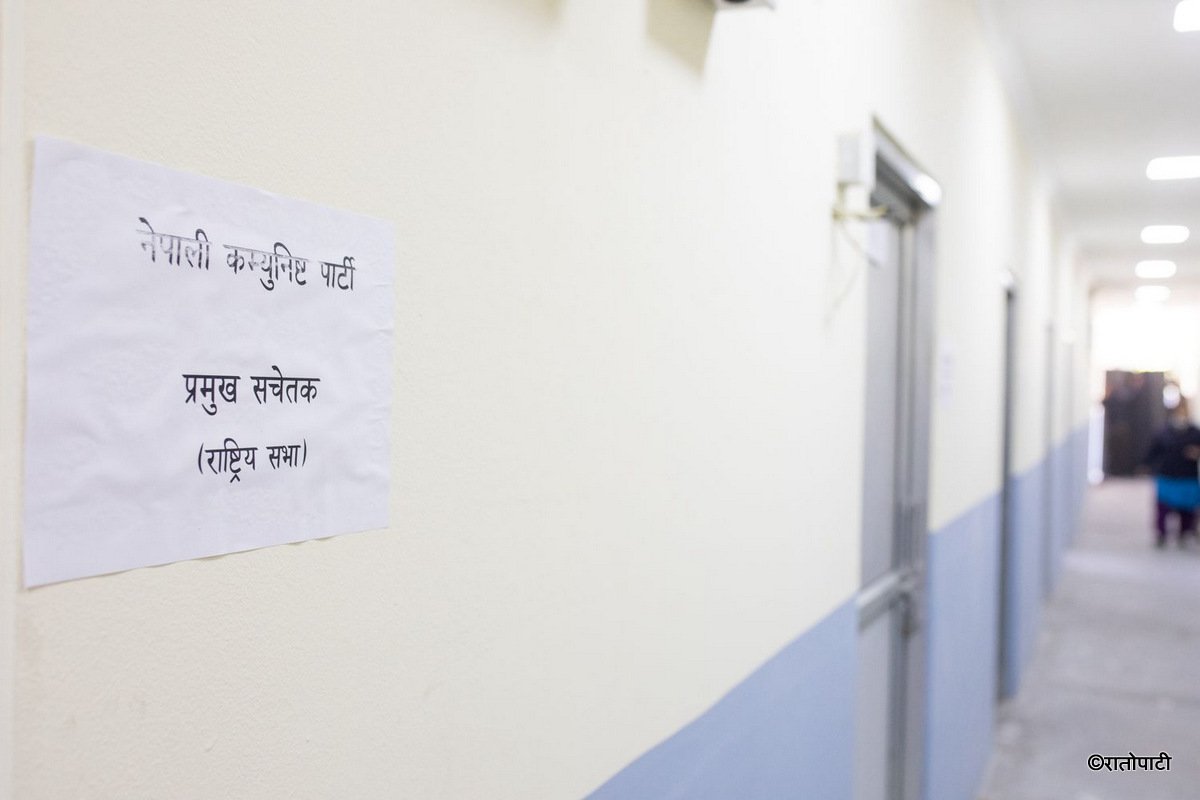 नेपाली कम्युनिष्ट पार्टी
प्रमुख सचेतक
(राष्ट्रिय सभा)
©रातोपाटी